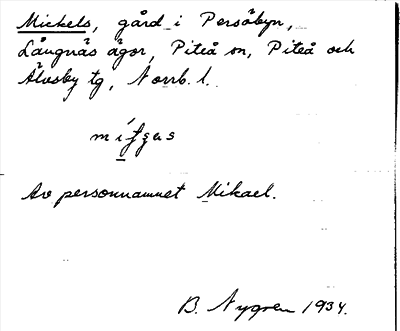 Mickels, gård i Persöbyn,
Långnäs ägor, Piteå sn, Piteå och
Älvsby tg, Norrb. l.
Av personnamnet Mikael.
B. Nygren 1934.